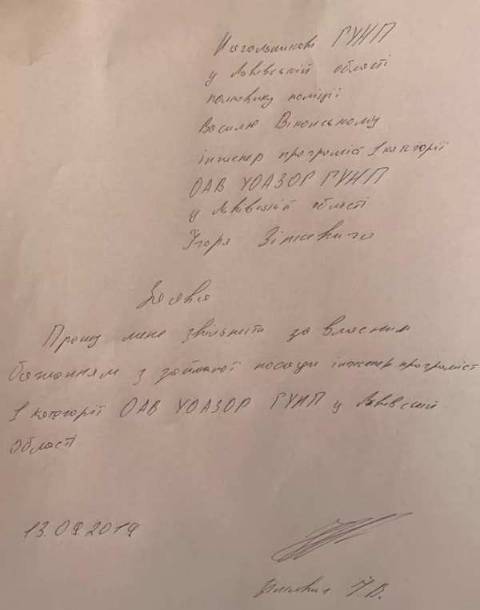 Начальникові ГУНП
у Львівській області
полковнику поліції
Василю Віконському
інженер програміст 1 категорії
ОАВ УОАЗОР ГУНП
у Львівській області
Ігоря
Заява
Прошу мене звільнити за власним
бажанням з займаної посади інженер програміст
1 категорії ОАВ УОАЗОР ГУНП у Львівській
області
13.09.2019